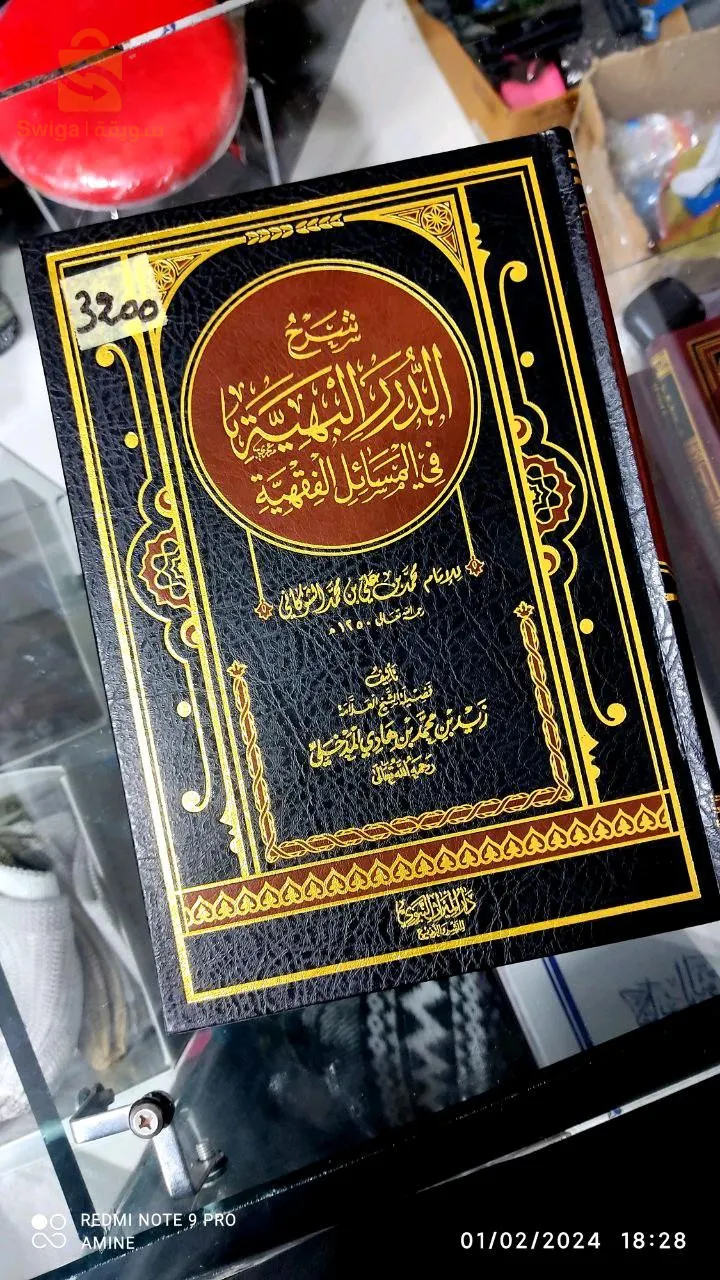 Swiga | سويقة
3200
شَرْحُ
الدُّرَرِ البَهِيَّةِ
فِي المَسَائِلِ الفِقْهِيَّةِ
للإمام محمد بن علي بن محمد الشوكاني
رحمه الله تعالى ١٢٥٠ هـ
تأليف
فضيلة الشيخ العلامة
زيد بن محمد بن هادي المدخلي
رحمه الله تعالى
دار الميراث النبوي
للنشر والتوزيع
REDMI NOTE 9 PRO
AMINE
01/02/2024 18:28